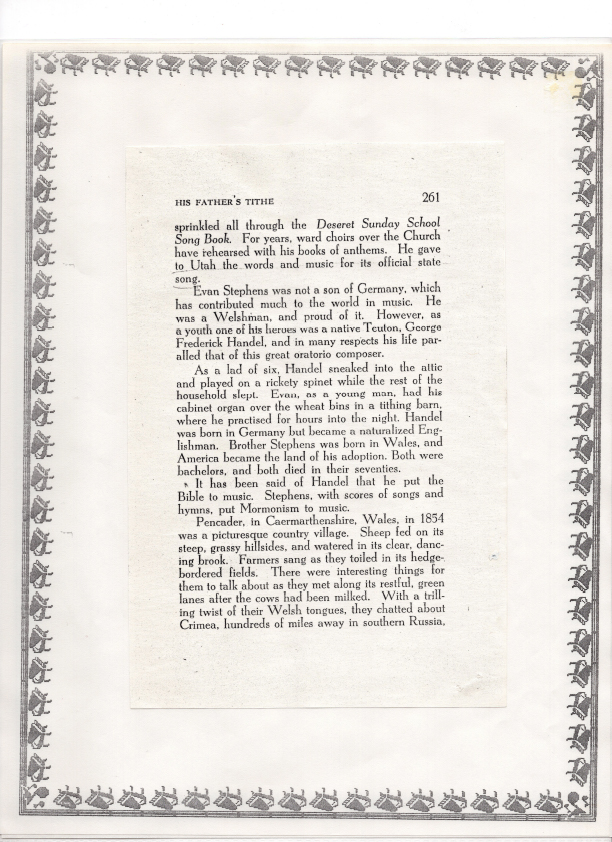 HIS FATHER'S TITHE 261
sprinkled all through the Deseret Sunday School
Song Book. For years, ward choirs over the Church
have rehearsed with his books of anthems. He gave
to Utah the words and music for its official state
song.
Evan Stephens was not a son of Germany, which
has contributed much to the world in music. He
was a Welshman, and proud of it. However, as
a youth one of his heroes was a native Teuton, George
Frederick Handel, and in many respects his life par-
alled that of this great oratorio composer.
As a lad of six, Handel sneaked into the attic
and played on a rickety spinet while the rest of the
household slept. Evan, as a young man, had his
cabinet organ over the wheat bins in a tithing barn,
where he practised for hours into the night. Handel
was born in Germany but became a naturalized Eng-
lishman. Brother Stephens was born in Wales, and
America became the land of his adoption. Both were
bachelors, and both died in their seventies.
It has been said of Handel that he put the
Bible to music. Stephens, with scores of songs and
hymns, put Mormonism to music.
Pencader, in Caermarthenshire, Wales, in 1854
was a picturesque country village. Sheep fed on its
steep, grassy hillsides, and watered in its clear, danc-
ing brook. Farmers sang as they toiled in its hedge-
bordered fields. There were interesting things for
them to talk about as they met along its restful, green
lanes after the cows had been milked. With a trill-
ing twist of their Welsh tongues, they chatted about
Crimea, hundreds of miles away in southern Russia,